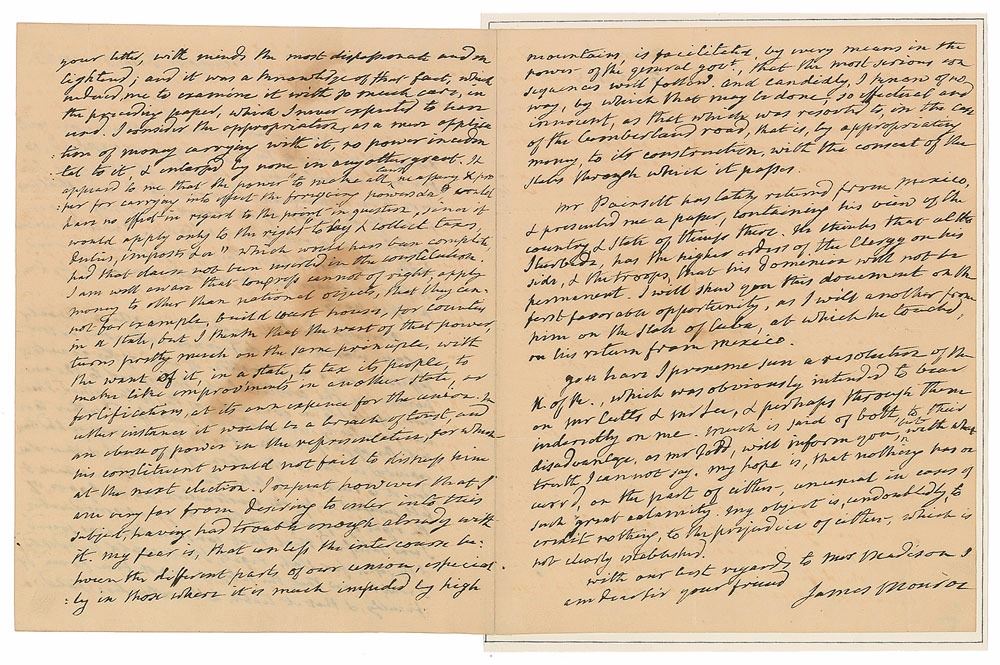 your letter, with minds the most dispassionate and en
lightend; and it was a knowledge of that fact, which
induced me to examine it with so much care, in
the preceding paper, which I never expected to hear
used. I consider the appropriation, as a mere applica
tion of money carrying with it, no power inciden
tal to it, & enlarged by none in any other grant. It
appeard to me that the power "to make all laws necessary & pro
per for carrying into effect the foregoing powers &a" would
have no effect in regard to the point in question, since it
would apply only to the right "to lay & collect taxes,
duties, imposts &a" which would have been complete
had that clause not been inserted in the constitution.
I am well aware that Congress cannot of right apply
money to other than national objects, that they can
not for example, build court houses, for counties
in a State, but I think that the want of that power,
turns pretty much on the same principle, with
the want of it, in a State, to tax its people, to
make like improvments in another State, or
fortifications, at its own expence for the union. In
either instance it would be a breach of trust and
an abuse of power in the representative, for which
his constituent would not fail to dismiss him
at the next election. I repeat however that I
am very far from desiring to enter into this
subject, having had trouble enough already with
it. My fear is, that unless the intercourse be:
tween the different parts of our union, especial
:ly in those where it is much impeded by high
mountains, is facilitated, by every means in the
power of the general govt., that the most serious con
sequences will follow. And candidly, I know of no
way, by which that may be done, so effectual and
innocent, as that which was resorted to, in the case
of the Cumberland road, that is, by appropriating
money, to its construction, with the consent of the
States through which it passes.
Mr Poinsett has lately returned from Mexico,
& presented me a paper, containing his view of the
country & State of things there. He thinks that altho
Iturbide, has the higher orders of the Clergy on his
side, & the troops, that his dominion will not be
permanent. I will shew you this document on the
first favorable opportunity, as I will another from
him on the State of Cuba, at which he touched,
on his return from Mexico.
You have I presume seen a resolution of the
H. of R., which was obviously intended to bear
on Mr Cutts & Mr Lee, & perhaps through them
indirectly on me. Much is said of both to their
disadvantage, as Mr Todd, will inform you, but with what
truth I cannot say. My hope is, that nothing has oc
curr'd, on the part of either, unusual in cases of
such great calamity. My object is, undoubtedly, to
credit nothing, to the prejudice of either, which is
not clearly established.
With our best regards to Mrs Madison I
am dear Sir your friend
James Monroe